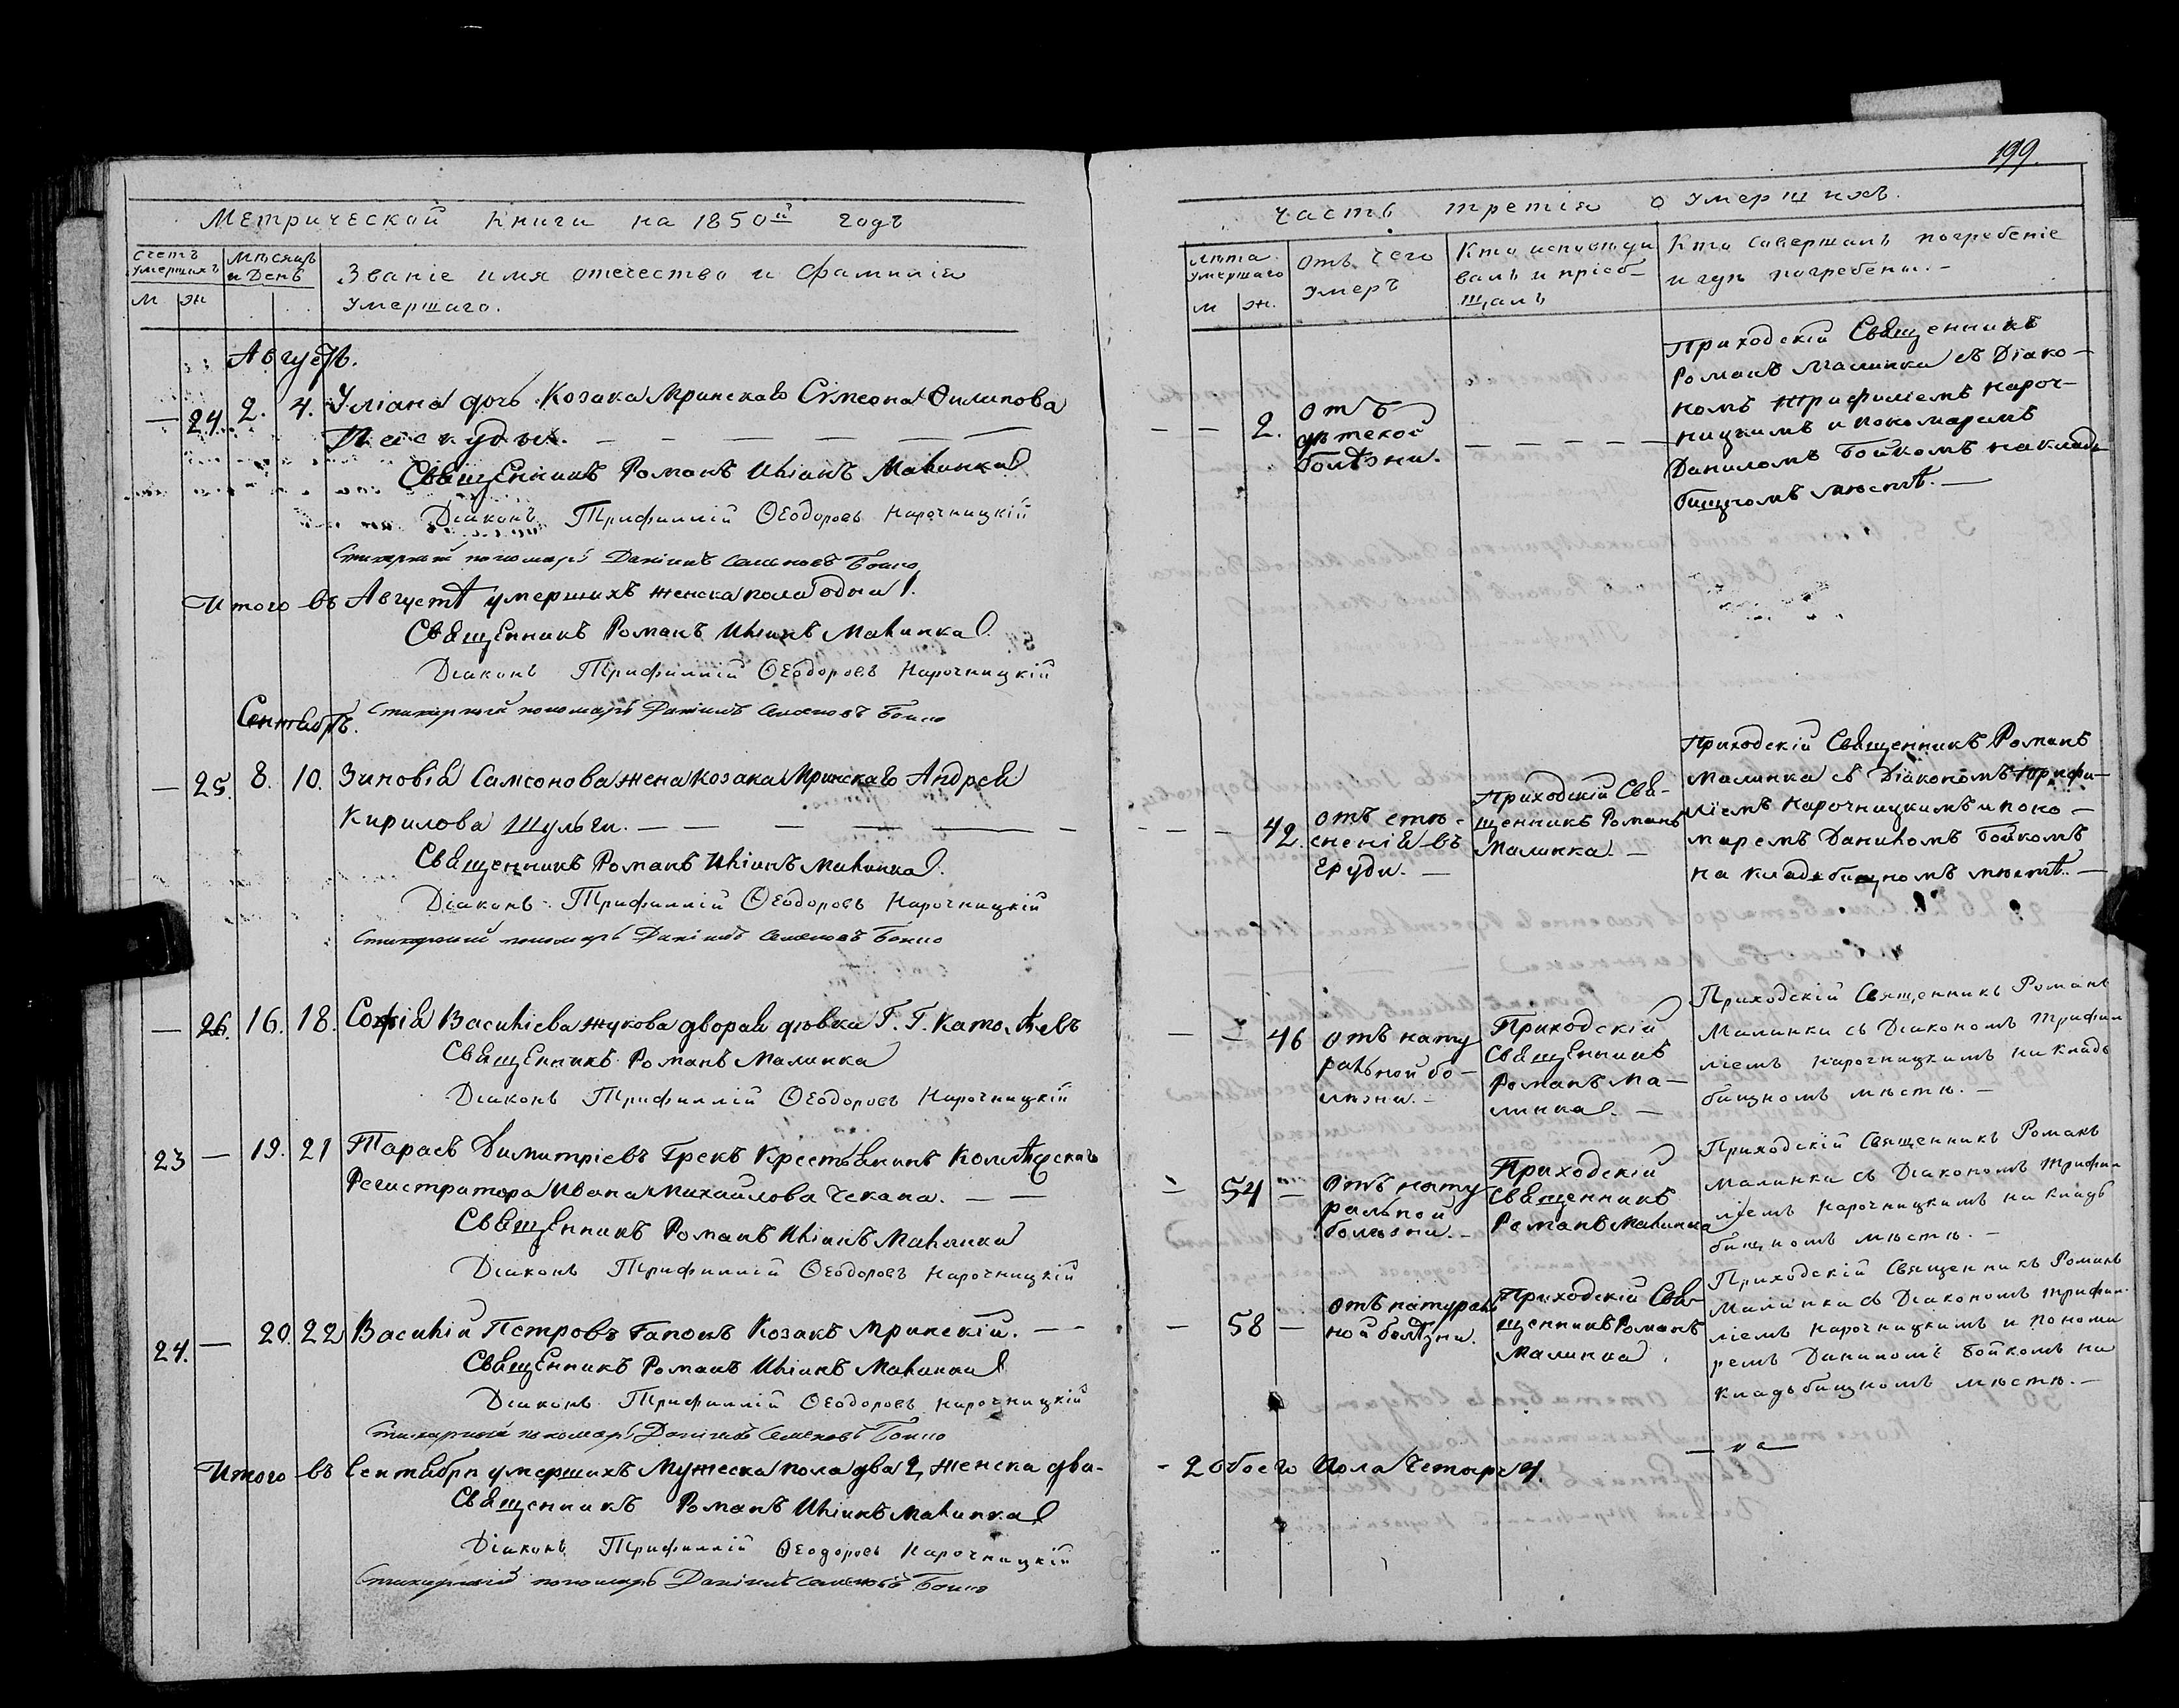 199.
Метрической Книги на 1850й годъ
Часть третія о умершихъ.
Счетъ умершихъ
Мѣсяцъ и День
Званіе имя отечество и фамилія
умершаго.
м ж
Лѣта умершаго
м ж.
Отъ чего
умеръ
Кто исповѣды
валъ и пріоб-
щалъ
Кто совершалъ погребеніе
и гдѣ погребены.-
Августъ.
— 24. 2. 4. Уліана дочь Козака Мринскаго Симеона Филипова
Паскуды. — — — — — —
Священникъ Романъ Иліинъ Малинка
Діаконъ Трифиллій Ѳеодоровъ Нарочницкій
Стихарный пономарь Даніилъ Семеновъ Бойко
— — 2.
отъ
дѣтской
болѣзни.
— — — — —
Приходскій Священникъ
Романъ Малинка съ Діако-
номъ Трифиліемъ Нароч-
ницкимъ и пономаремъ
Даниломъ Бойкомъ на кладъ
бищномъ мѣстѣ. —
Итого въ Августѣ умершихъ женска пола одна 1.
Священникъ Романъ Иліинъ Малинка
Діаконъ Трифиллій Ѳеодоровъ Нарочницкій
Стихарный пономарь Даніилъ Семеновъ Бойко
Сентябрь.
— 25. 8. 10. Зиновія Самсонова жена козака Мринскаго Андрея
Кирилова Шульги. — — — — — —
Священникъ Романъ Иліинъ Малинка
Діаконъ Трифиллій Ѳеодоровъ Нарочницкій
Стихарный пономарь Даніилъ Семеновъ Бойко
— — 42.
отъ стѣ-
сненія въ
груди. —
Приходскій Свя-
щенникъ Романъ
Малинка. —
Приходскій Священникъ Романъ
Малинка съ Діакономъ Трифи-
ліемъ Нарочницкимъ и поно-
маремъ Даниломъ Бойкомъ
на кладъбищномъ мѣстѣ. —
— 26. 16. 18. Софія Василіева Жукова дворай дѣвка Г. Г.
Священникъ Романъ Малинка
Діаконъ Трифиллій Ѳеодоровъ Нарочницкій
— — 46
отъ нату
ральной бо-
лѣзни. -
Приходскій
Священникъ
Романъ Ма-
линка. —
Приходскій Священникъ Романъ
Малинка съ Діакономъ Трифил
ліемъ Нарочницкимъ на кладъ
бищномъ мѣстѣ. —
23 — 19. 21 Тарасъ Димитріевъ Грекъ Крестьянинъ Коллѣжскаго
Регистратора Ивана Михайлова Чекана. — —
Священникъ Романъ Иліинъ Малинка
Діаконъ Трифиллій Ѳеодоровъ Нарочницкій
— 54 —
Отъ нату
ральной
болѣзни. -
Приходскій
Священникъ
Романъ Малинка
Приходскій Священникъ Романъ
Малинка съ Діакономъ Трифил
ліемъ Нарочницкимъ на кладъ
бищномъ мѣстѣ. —
24. — 20. 22 Василій Петровъ Гапонъ Козакъ Мринскій. — —
Священникъ Романъ Иліинъ Малинка
Діаконъ Трифиллій Ѳеодоровъ Нарочницкій
Стихарный пономарь Даніилъ Семеновъ Бойко
— 58 —
Отъ натураль
ной болѣзни.
Приходскій Свя-
щенникъ Романъ
Малинка.
Приходскій Священникъ Романъ
Малинка съ Діакономъ Трифил
ліемъ Нарочницкимъ и понома
ремъ Даниломъ Бойкомъ на
кладъбищномъ мѣстѣ. —
Итого въ Сентябрѣ умершихъ Мужеска пола два 2, женска два - 2 обоего пола четыре 4.
Священникъ Романъ Иліинъ Малинка
Діаконъ Трифиллій Ѳеодоровъ Нарочницкій
Стихарный пономарь Даніилъ Семеновъ Бойко